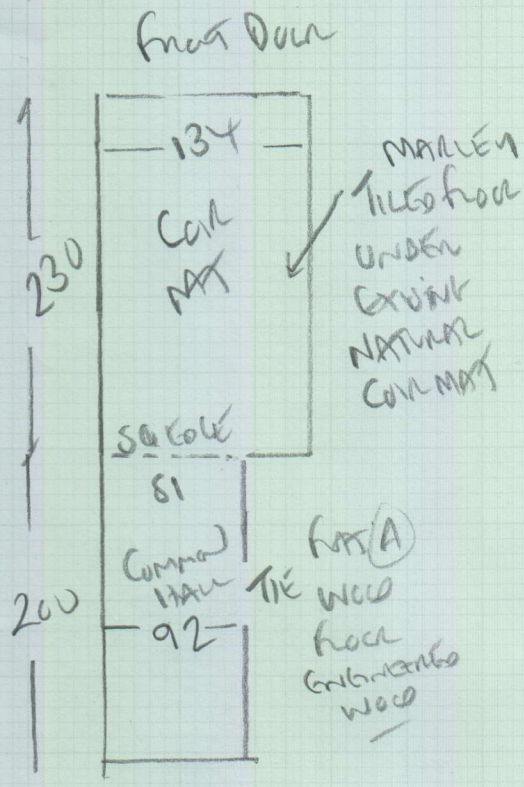 Front Door
134
COIR
MAT
230
MARLEY
TILED FLOOR
UNDER
EXISTING
NATURAL
COIR MAT
SQ EDGE
81
COMMON
HALL
200
92
FLAT A
WOOD
FLOOR
ENGINEERED
WOOD